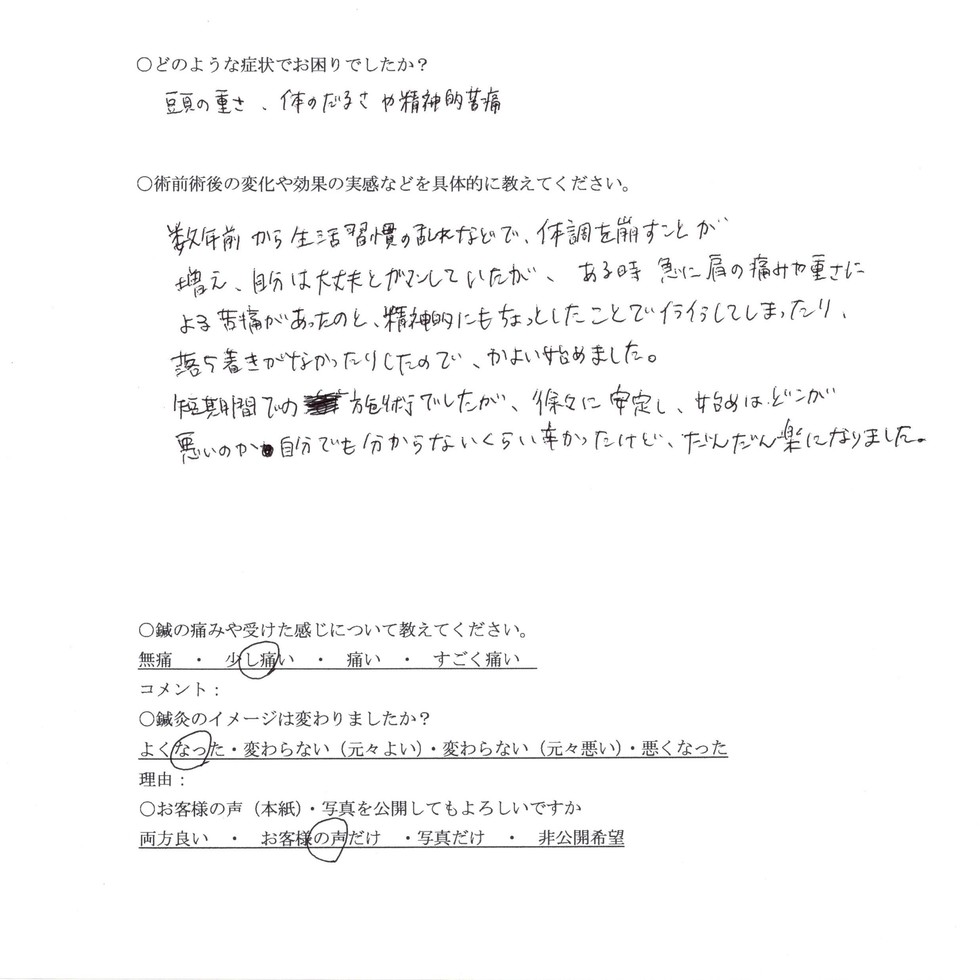 ○どのような症状でお困りでしたか？
頭の重さ、体のだるさや精神的苦痛
○術前術後の変化や効果の実感などを具体的に教えてください。
数年前から生活習慣の乱れなどで、体調を崩すことが
増え、自分は大丈夫とガマンしていたが、ある時急に肩の痛みや重さに
よる苦痛があったのと、精神的にもちょっとしたことでイライラしてしまったり、
落ち着きがなかったりしたので、かよい始めました。
短期間での施術でしたが、徐々に安定し、始めはどこが
悪いのか自分でも分からないくらい辛かったけど、だんだん楽になりました。
○鍼の痛みや受けた感じについて教えてください。
無痛　・　少し痛い　・　痛い　・　すごく痛い
コメント：
○鍼灸のイメージは変わりましたか？
よくなった・変わらない（元々よい）・変わらない（元々悪い）・悪くなった
理由：
○お客様の声（本紙）・写真を公開してもよろしいですか
両方良い　・　お客様の声だけ　・写真だけ　・　非公開希望